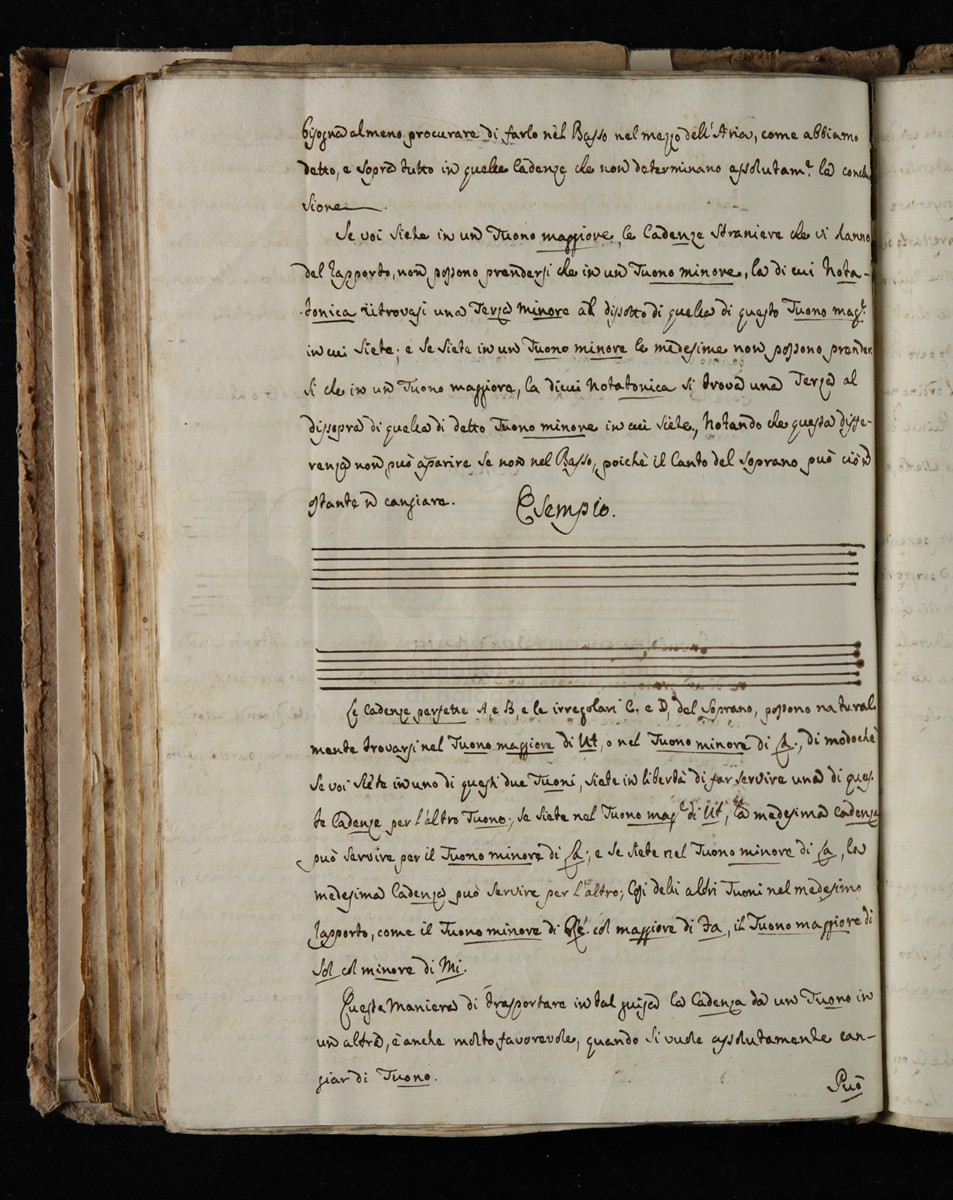 bisogna almeno procurare di farlo nel Basso nel mezzo dell'Aria, come abbiamo
detto, e sopra tutto in quelle Cadenze che non determinano assolutam.e la conclu
sione.
Se voi siete in un Tuono maggiore, le Cadenze straniere che vi danno
del rapporto, non possono prendersi che in un Tuono minore, la di cui Nota-
tonica ritrovasi una Terza Minore al dissotto di quella di questo Tuono mag.e
in cui siete; e se siete in un Tuono minore le medesime non possono prender
si che in un Tuono maggiore, la dicui Notatonica si trova una Terza al
dissopra di quella di detto Tuono minore in cui siete, Notando che questa diffe-
renza non può aparire se non nel Basso, poichè il Canto del Soprano può ciò n
ostante n cangiare.
Esempio.
Le Cadenze perfette A, e B, e le irregolari C, e D, del Soprano, possono natural
mente trovarsi nel Tuono maggiore di Ut, o nel Tuono minore di La, di modochè
se voi siete in uno di questi due Tuoni, siete in libertà di far servire una di ques
te Cadenze per l'altro Tuono; se siete nel Tuono mag.e di Ut, la medesima cadenza
può servire per il Tuono minore di La; e se siete nel Tuono minore di La, la
medesima Cadenza può servire per l'altro; Così delli altri Tuoni nel medesimo
rapporto, come il Tuono minore di Rè col maggiore di Fa, il Tuono maggiore di
Sol col minore di Mi.
Questa Maniera di trasportare in tal guisa la Cadenza da un Tuono in
un altro, è anche molto favorevole, quando si vuole assolutamente can-
giar di Tuono.
Può